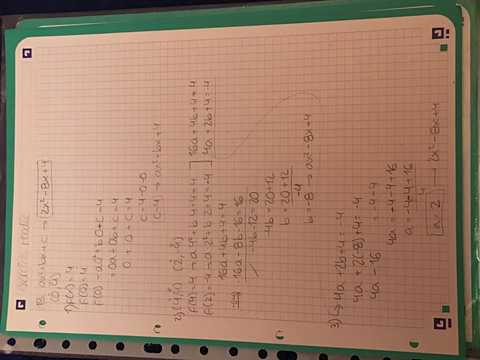 B. ax²+bx+c → 2x²-8x+4
(0,4)
1) f(x)=4
f(0)=4
f(0) → a0²+b0+c=4
=0a+0b+c=4
0+0+c=4
c=4-0-0
c=4 → ax²+bx+4
2) (4,4) (2,-4)
f(4)=4 → a4²+b4+4=4 16a+4b+4=4
f(2)=-4 → a2²+b2+4=-4 4a+2b+4=-4
16a+4b+4=4
-16a-8b-16=16
-4b-12=20
-4b=20+12
b=20+12
-4
b=-8 → ax²-8x+4
3) → 4a+2b+4=-4
4a+2(-8)+4=-4
4a-16 =-4-4
4a=-4-4+16
a=-4-4+16
4
a=2 → 2x²-8x+4